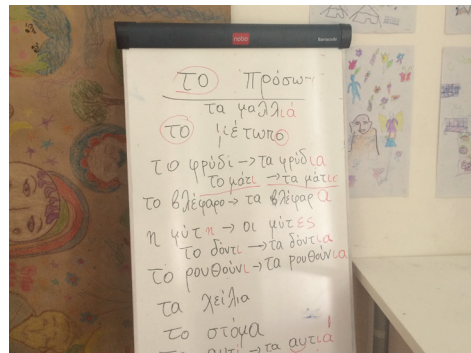 nobo
το πρόσω
τα μαλλιά
το μέτωπο
το φρύδι → τα φρύδια
το μάτι → τα μάτια
το βλέφαρο → τα βλέφαρα
η μύτη → οι μύτες
το δόντι → τα δόντια
το ρουθούνι → τα ρουθούνια
τα χείλια
το στόμα
το αυτί → τα αυτιά